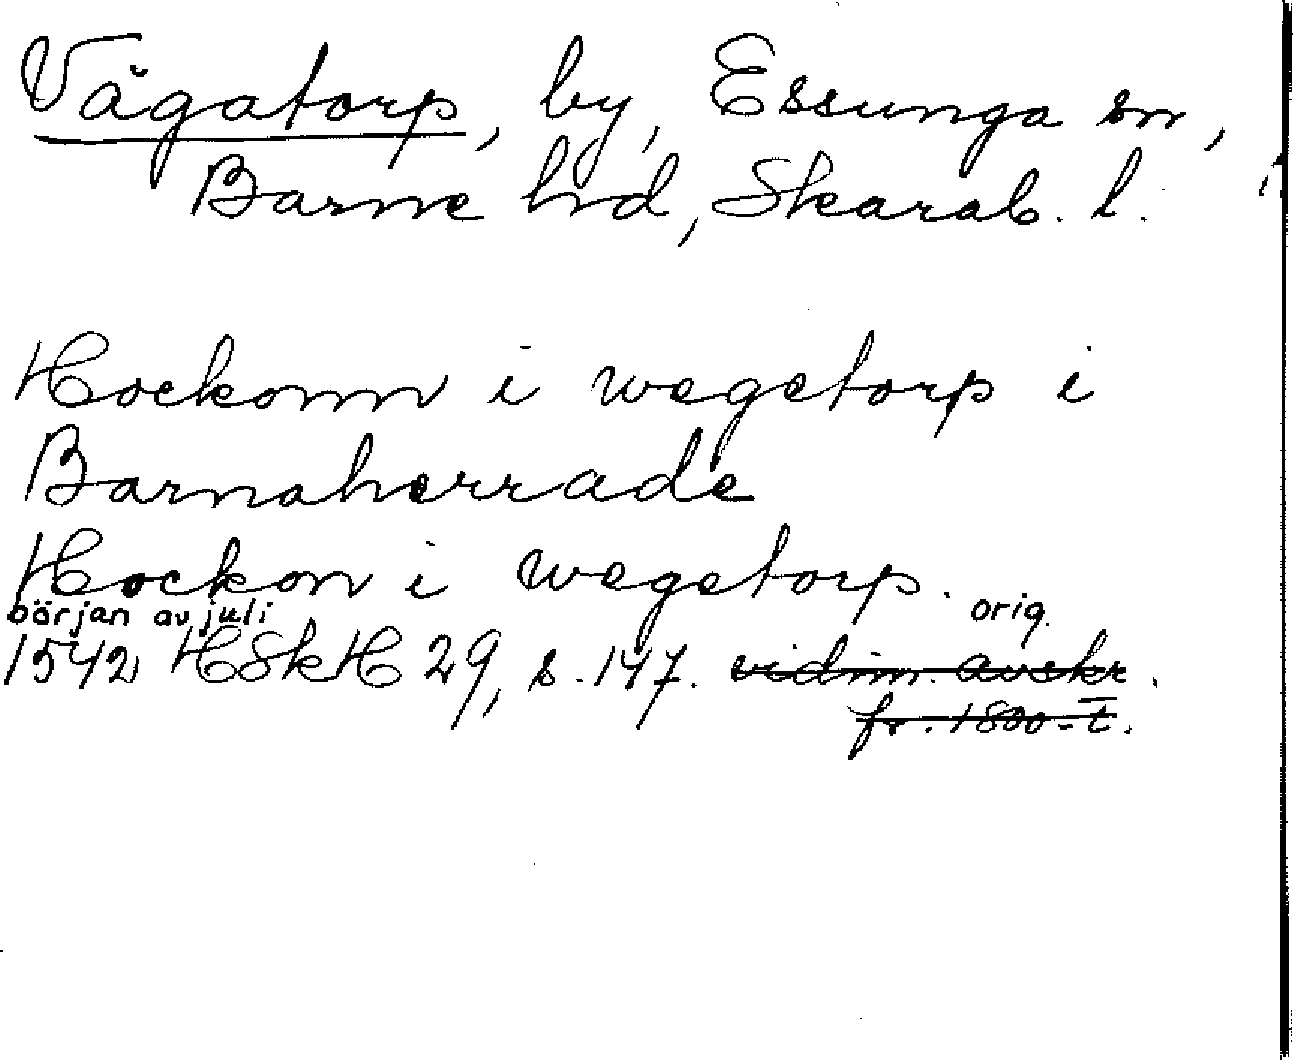 Vågatorp, by, Essunga sn,
Barne hd, Skarab. l.
Hockonn i wegetorp i
Barnaherrade
Hockon i wegetorp.
början av juli
orig.
1542 HSkH 29, s. 147. vidim. avskr.
fr. 1800-t.